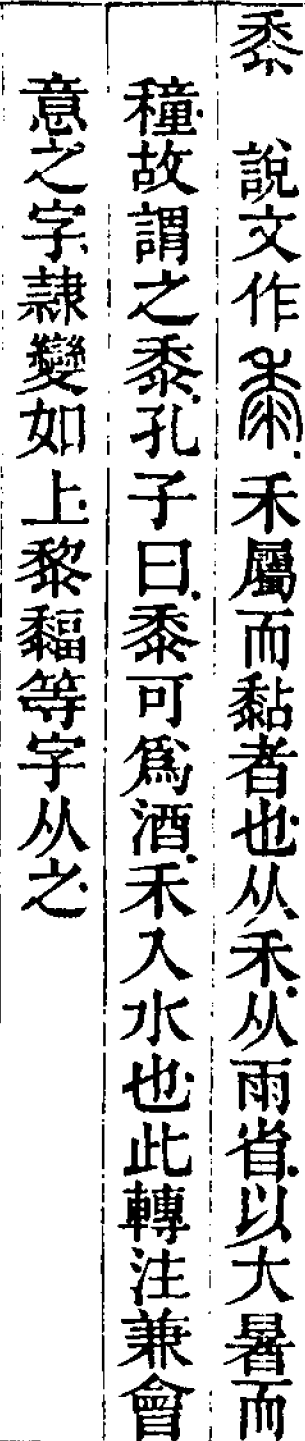 黍 說文作黍禾屬而黏者也从禾从雨省以大暑而
穜故謂之黍孔子曰黍可爲酒禾入水也此轉注兼會
意之字隸變如上黎等字从之